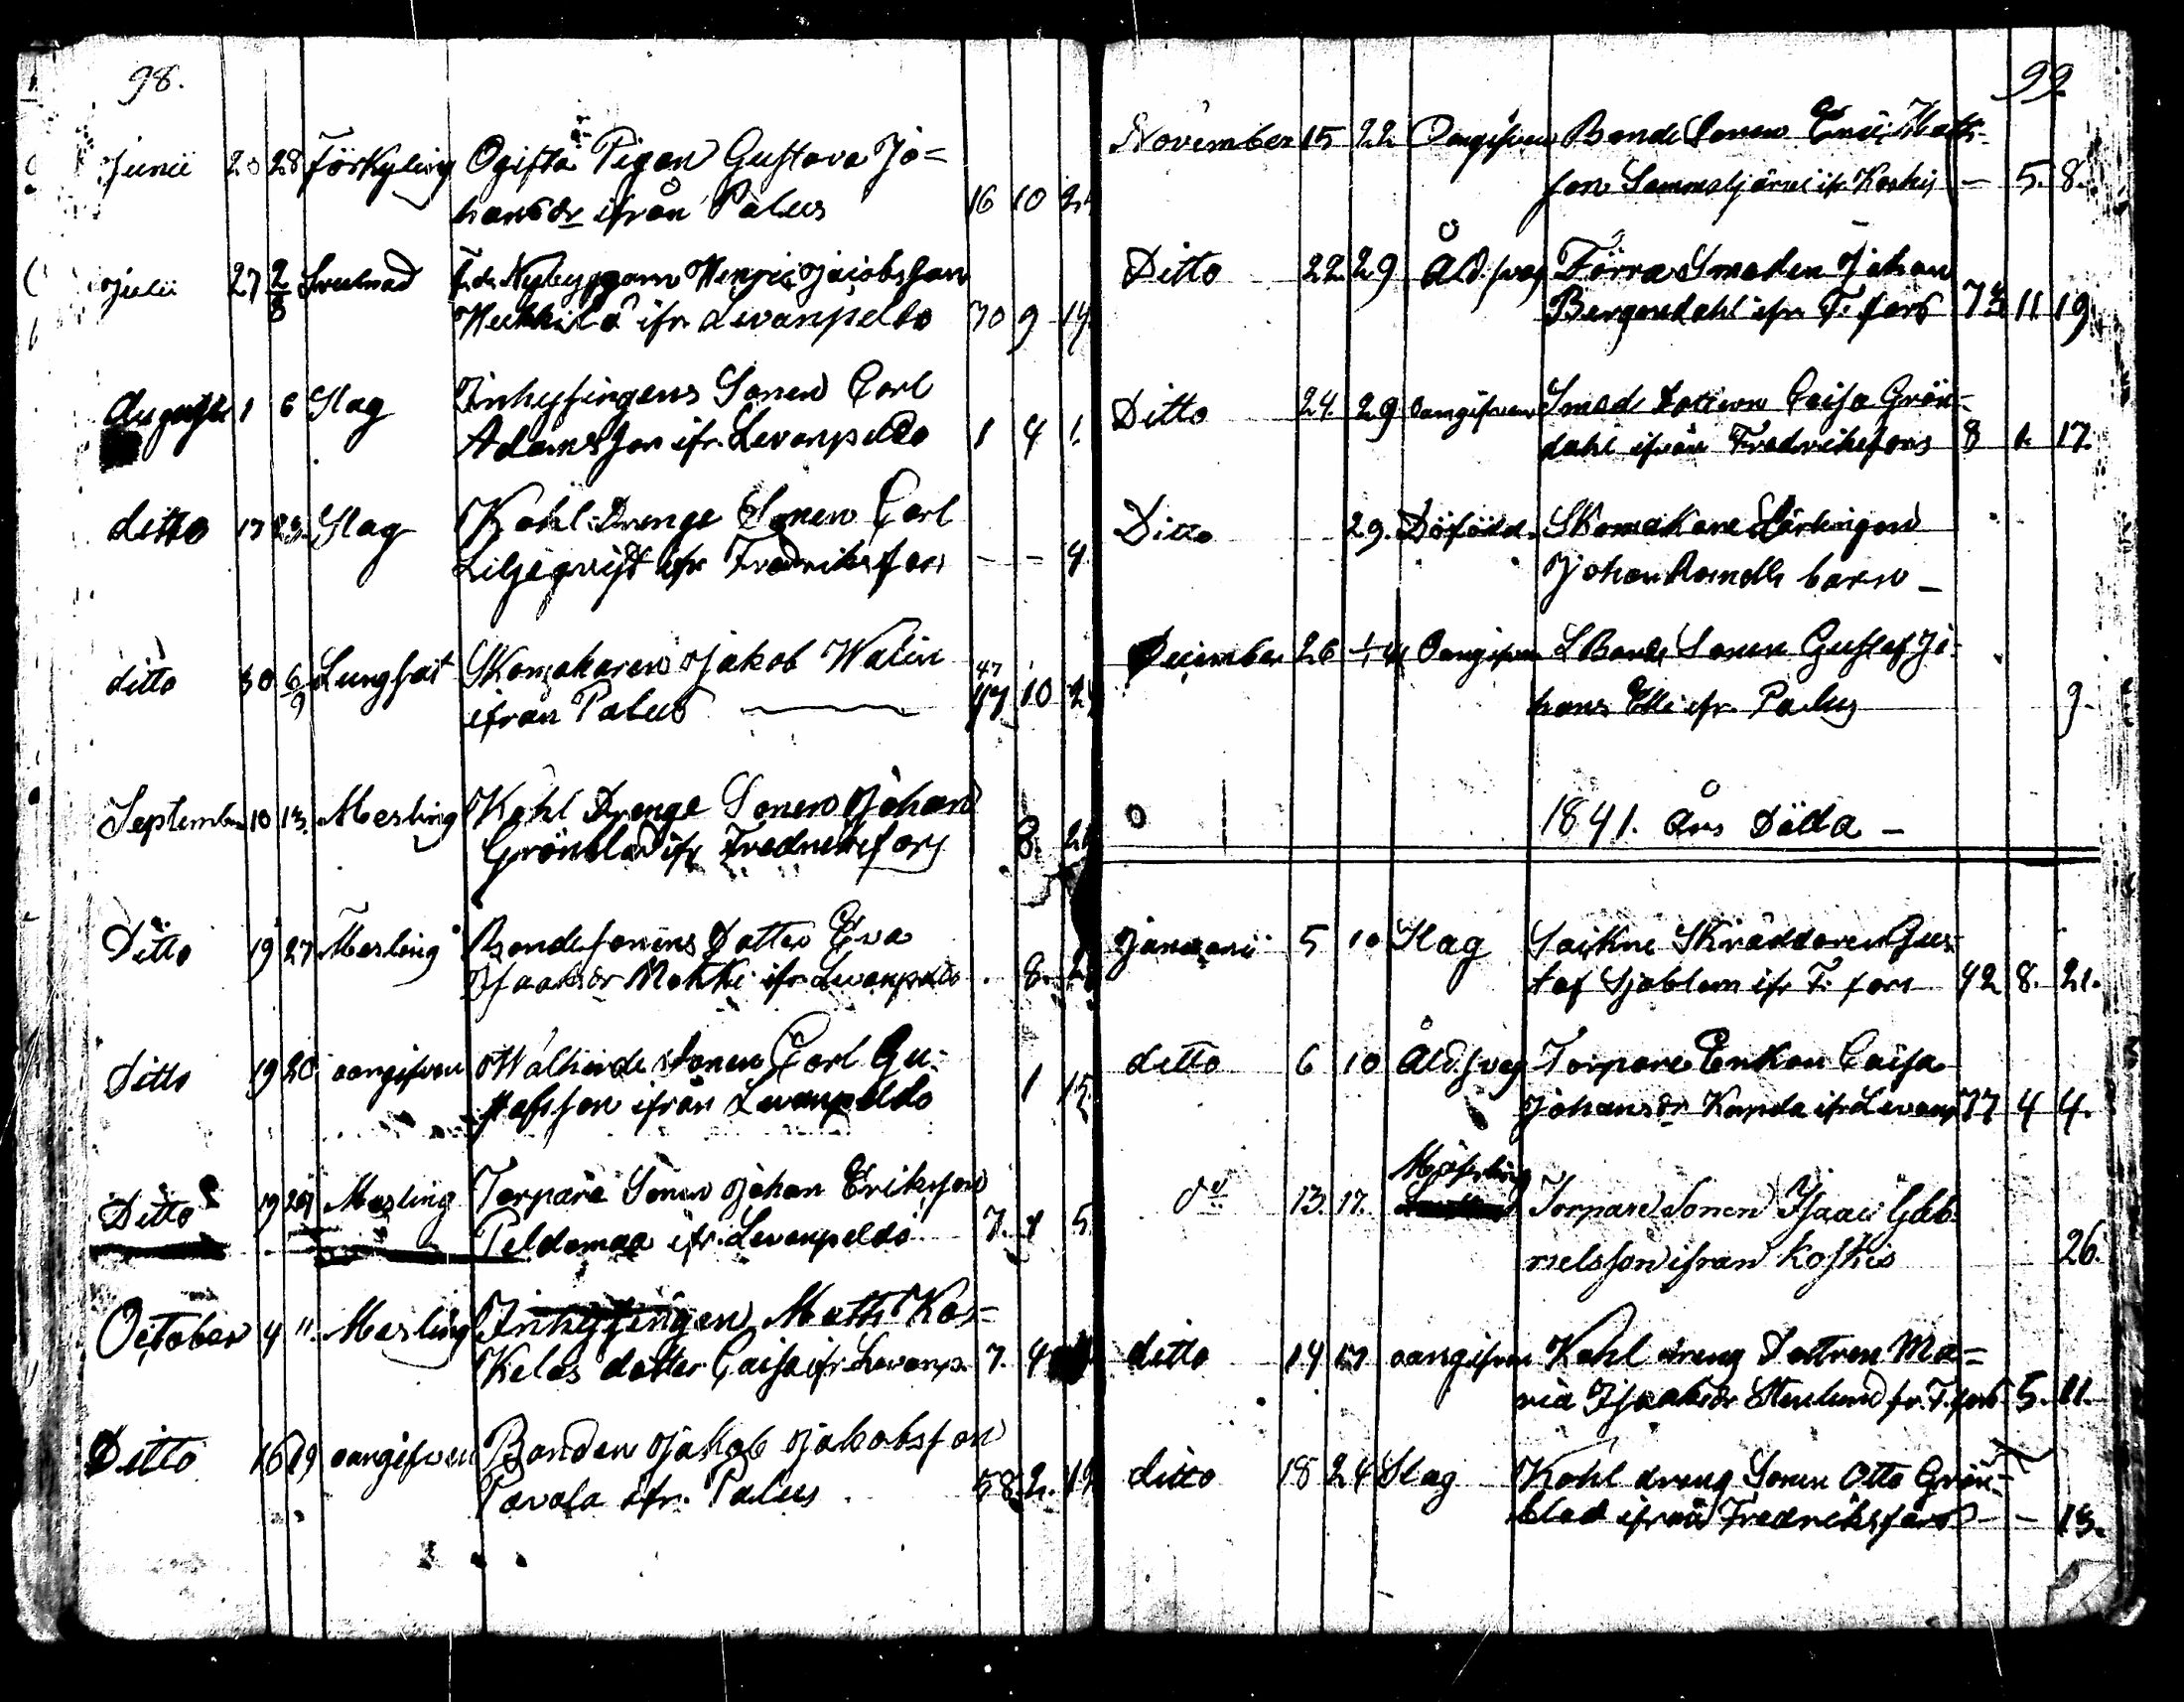 98.
Junii 20 28 Förkyling Ogifta Pigan Gustava Jo=
hansdr ifrån Palus 16 10
Julii 27 2/8 Svulnad F.d. Nybyggarn Henric Jacobsson
Heikkilä ifr Levanpeldo 70 9 14
Augusti 1 6 Slag Inhysingens Sonen Carl
Adamsson ifr. Levanpeldo 1 4 1.
ditto 17 23. Slag Kohl Drenge Sonen Carl
Liljeqvist ifr Fredriksfors – – 4
ditto 30 6/9 Lungsot Skomakaren Jakob Walin 47
ifrån Palus 10
September 10 13. Mesling Kohl Drenge Sonen Johan
Grönblad ifr Fredriksfors 8.
Ditto 19 27 Mesling Bondesonens Dotter Eva
Isaksdr ifr Levanpeldo . 8.
Ditto 19 20 oangifven Sonen Carl Gu-
stafsson ifrån Levanpeldo 1 15
Ditto 19 Mesling Torpare Sonen Johan Eriksson
Peldomaa ifr. Levanpeldo 7. 5
October 4 11. Mesling Inhysingen Matts Kos=
Kelas dotter Caisa ifr. Levanp. 7. 4
Ditto 16 19 oangifven Bonden Jakob Jakobsson
Pavola ifr. Palus 58 2. 19
99
November 15 22 Oangifven Bonde Sonen Eric Matts-
son Sammaljärvi ifr Koskis – 5. 8.
Ditto 22. 29 Åld.sveg Förra Smeden Johan
Bergendahl ifr. F. fors 11 19.
Ditto 24. 29 oangifven Smeds Dottren Caisa Grön-
dahl ifrån Fredriksfors 8 1. 17.
Ditto 29. Dödföd. Skomakare Lärlingen
Johan barn –
December 26 1/1 41 Oangifven Bonde Sonen Gustaf Jo-
hans Elli ifr. Palus 9.
1841. Års Döda –
Januarii 5 10 Slag Sockne Skräddaren Gus-
taf Sjöblom ifr F. fors 42 8. 21.
ditto 6 10 Åld.sveg Torpare Enkan Caisa
Johansdr ifr Levanp 77 4 4.
do 13. 17. Mässling Torpare Sonen Isaac Gab-
rielsson ifrån Koskis 26.
ditto 14 17 oangifven Kohl dreng Dottren Ma=
ria Isaaksdr Stenlund fr. F. fors 5. 11.
ditto 18 24 Slag Kohl dreng Sonen Otto Grön-
blad ifrån Fredriksfors – – 13.